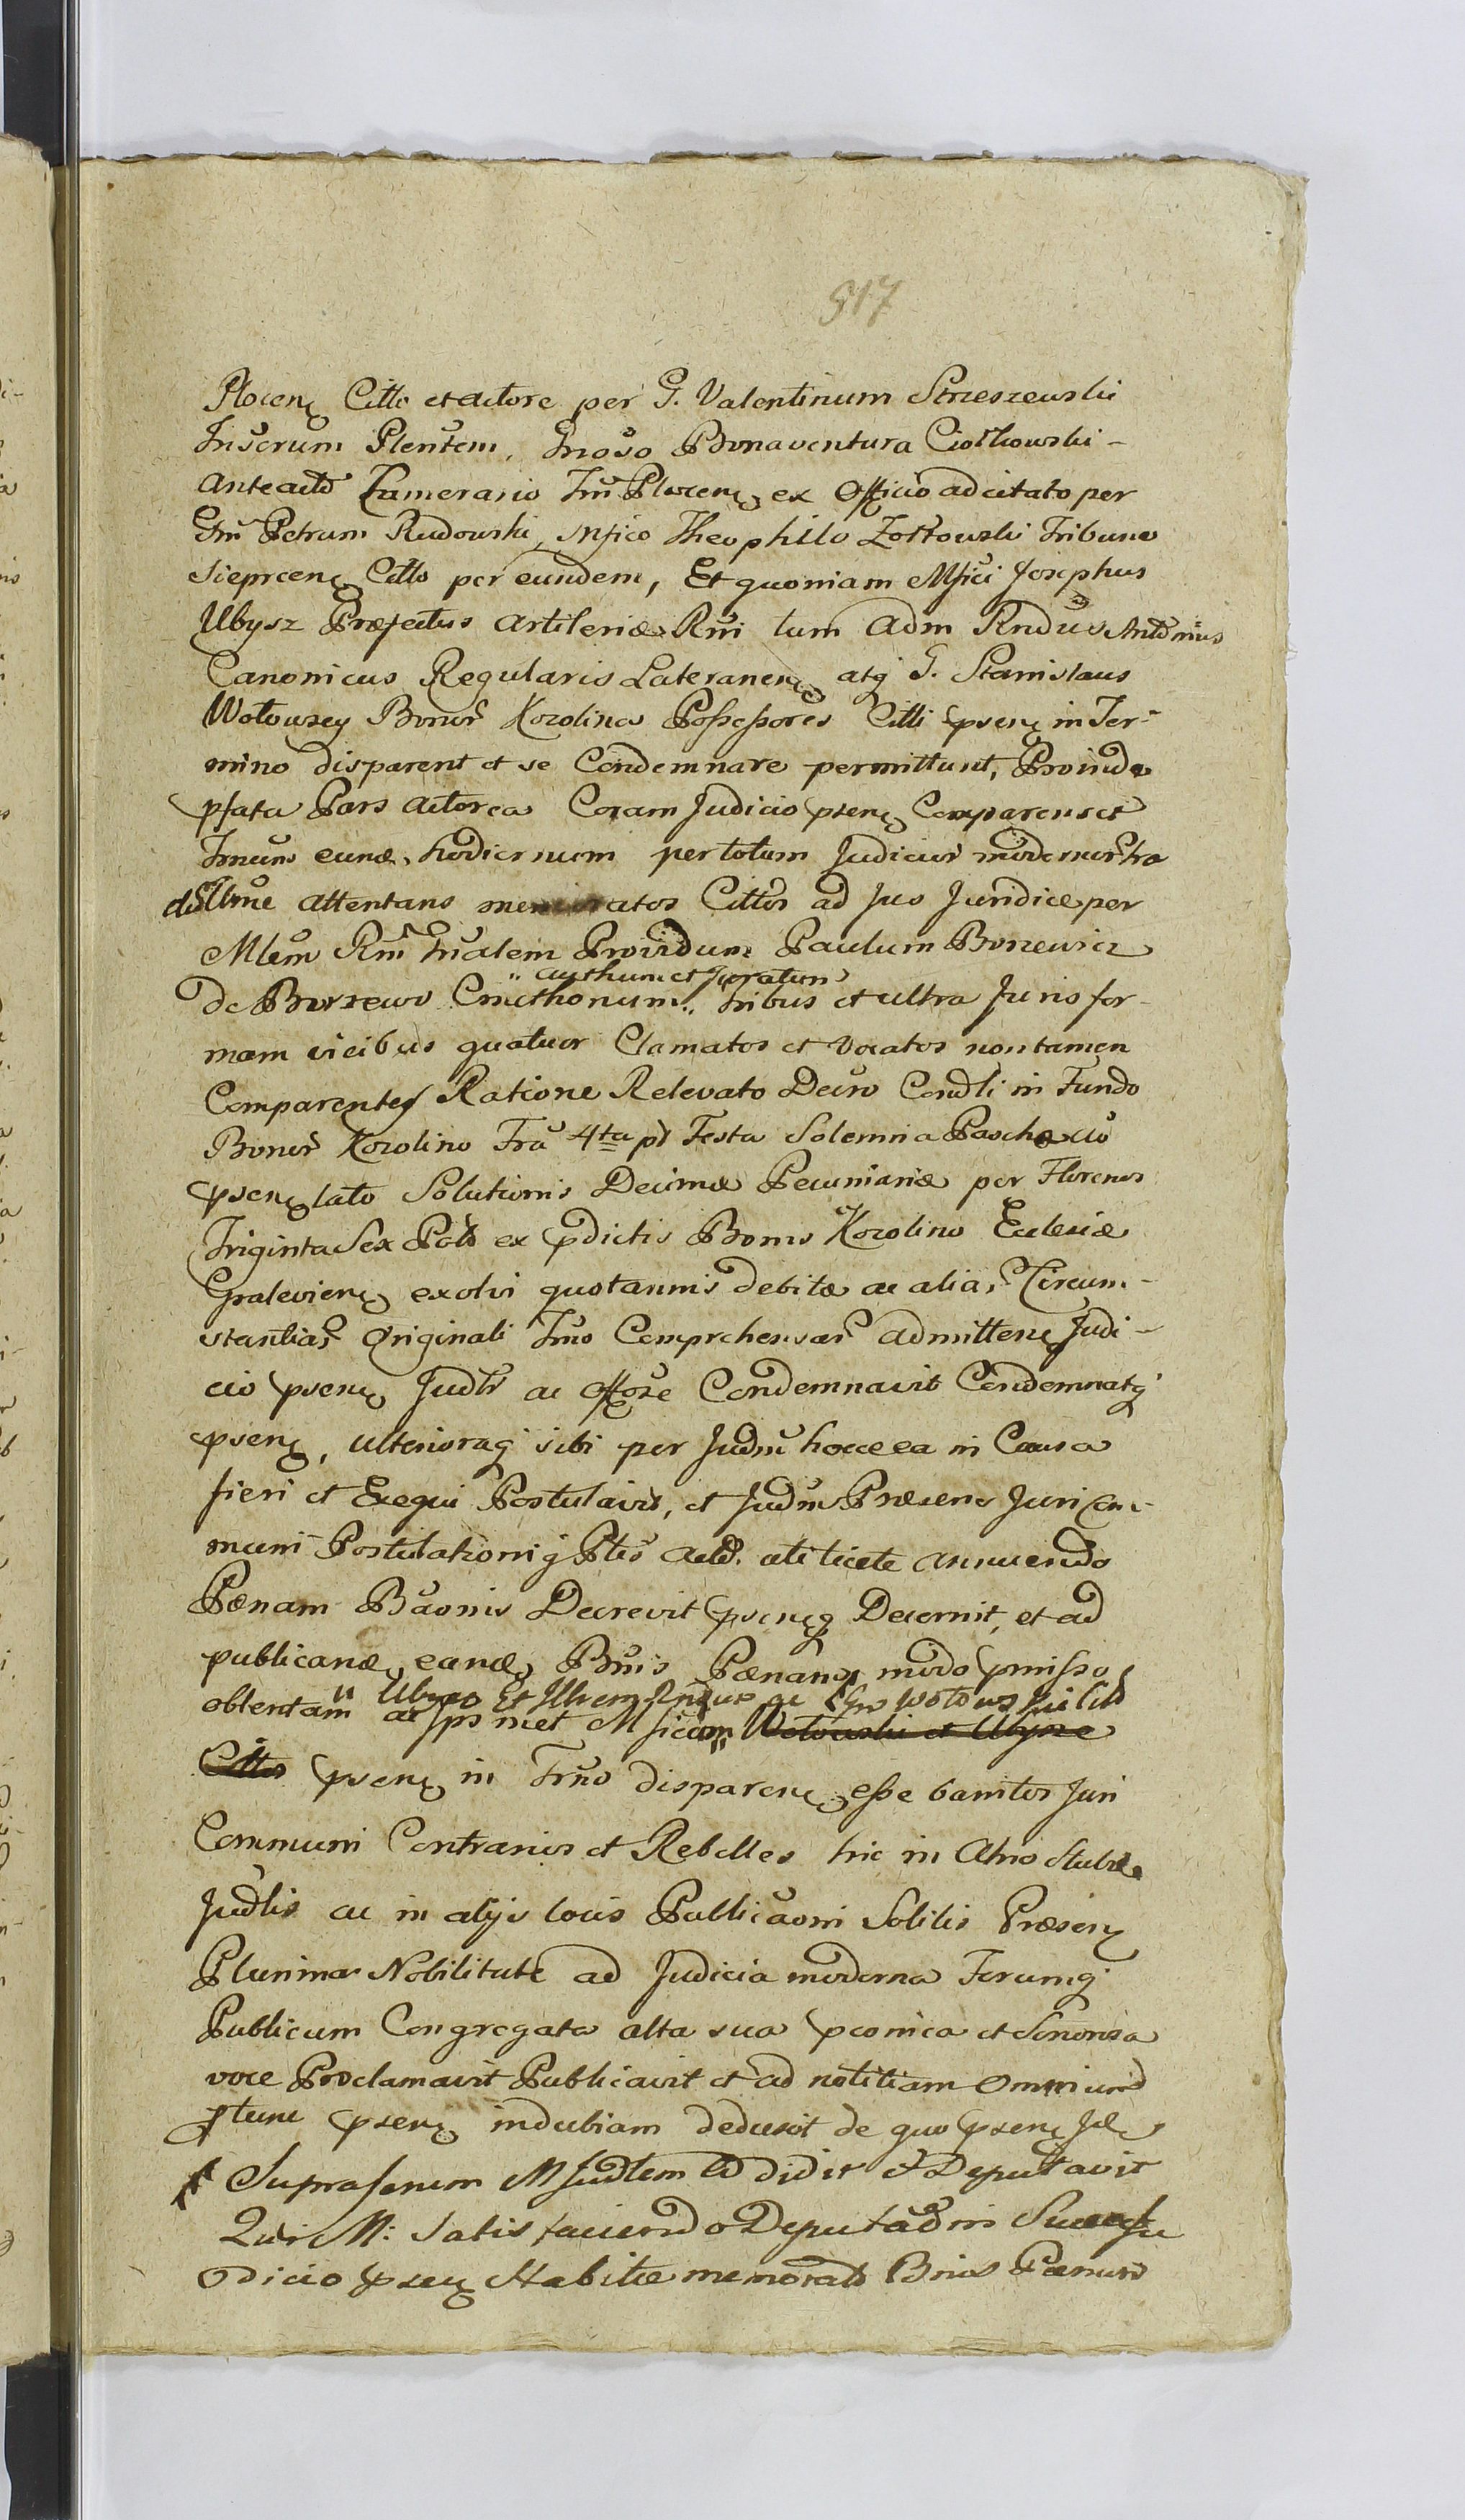 517
Plocen Citto et actore per G. Valentinum Strzeszewski
Inserum Plentem, Gnoso Bonaventura Ciołkowski -
anteacto Camerario Trri Plocen ex Officio adcitato per
Gm Petrum Rudowski, Mfico Theophilo Zołtowski Tribuno
Sieprcen Citto per eundem, Et quoniam Mfici Josephus
Ubysz Præfectus Artileriæ Rni tum Adm Rndus Antonius
Canonicus Regularis Lateranen atq G. Stanislaus
Wołowscy Bonor Kozolino Possessores Citti psen in Ter-
mino disparent et se Condemnare permittunt, Proinde
pfata Pars actorea Coram Judicio psen Comparens et
Tmum eunde, hodiernum per totum Judicior modernor tra
ctum attentans memoratos Cittos ad Jus Juridice per
Mlem Rni Trialem Providum Paulum Borzewicz
"authum et Juratum
de Borzewo Cmethonum" tribus et ultra Juris for-
mam vicibus quatuor Clamatos et vocatos non tamen
Comparentes Ratione Relevato Decro Condli in Fundo
Bonor Kozolino Fra 4ta pt Festa Solemnia Paschæ
psen lato Solutionis Decimæ Pecuniariæ per Florenos
Triginta Sex Pols ex pdictis Bonis Kozolino Ecclesiæ
Gralevien exolvi quotannis debitæ ac aliar Circum-
stantiar Originali Tmo Comprehensar admitten Judi-
cio psen Judtr ac Offose Condemnavit Condemnatq
psen, ulterioraq sibi per Judm hocce ea in Causa
fieri et Exequi Postulavit, et Judm Præsens Juri Com-
muni Postulationiq Ptis actæ. uti licite annuendo
Pænam Bãonis Decrevit psenq Decernit, et ad
publicand eand Bnis Pænam modo pmisso
obtentam ac Ipsmet Mficum" Wołowski et Ubysz
" Ubysz Et Rndus ac Gn Wołowski Citt
Cittos psen in Trno disparen esse banitos Juri
Communi Contrarios et Rebelles hic in Atrio Stubæ
Judlis ac in alijs locis Publicaoni Solitis Præsen
Plurima Nobilitate ad Judicia moderna Forumq
Publicum Congregata alta sua pconica et Sonorosa
voce Proclamavit Publicavit et ad notitiam omnium
tunc psen indubiam deduxit de quo psen
Suprafenum Mfudtem Ad didit et Deputavit
Qui M: Satisfaciendo Deputaoni
Odicio psen Habitæ memorato Bnis Pænam